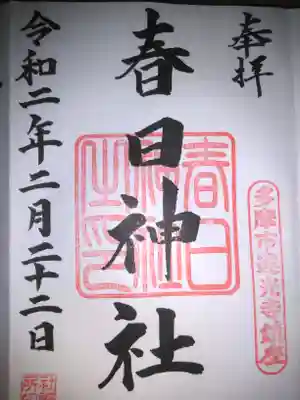 奉拝
多摩市連光寺鎮座
春日神社
春日神社之印
令和二年二月二十二日